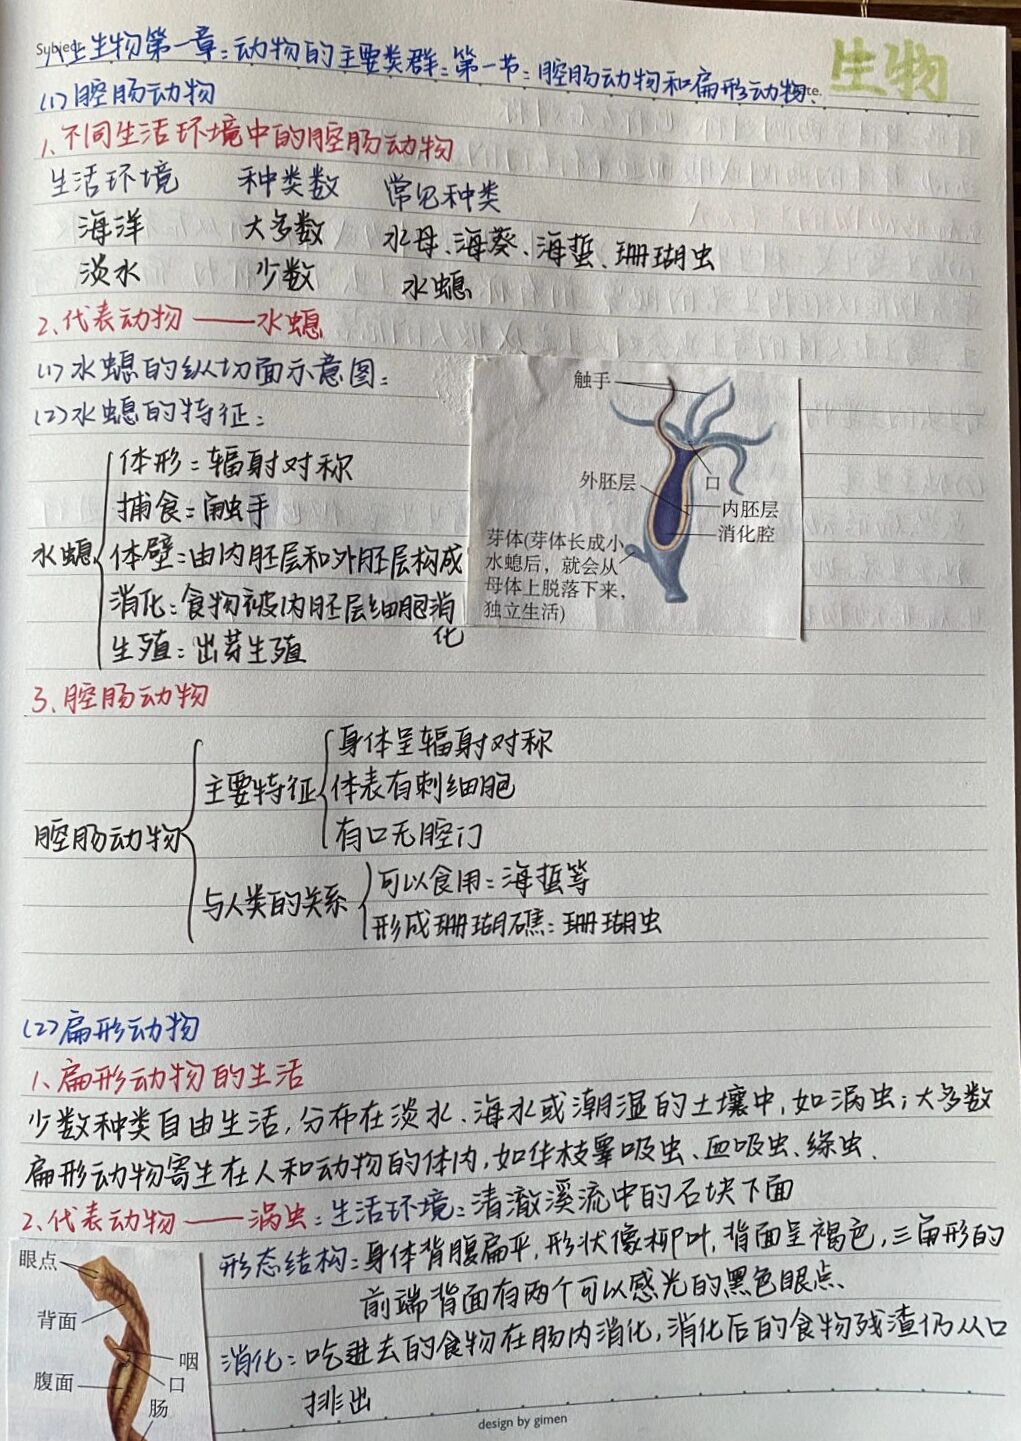 Subject
八上生物第一章:动物的主要类群:第一节:腔肠动物和扁形动物.
te.
生物
(1)腔肠动物
1、不同生活环境中的腔肠动物
生活环境 种类数 常见种类
海洋 大多数 水母、海葵、海蜇、珊瑚虫
淡水 少数 水螅
2、代表动物——水螅
(1)水螅的纵切面示意图:
(2)水螅的特征:
水螅
体形:辐射对称
捕食:触手
体壁:由内胚层和外胚层构成
消化:食物被内胚层细胞消
化
生殖:出芽生殖
触手
口
外胚层
内胚层
消化腔
芽体(芽体长成小
水螅后，就会从
母体上脱落下来，
独立生活)
3、腔肠动物
腔肠动物
主要特征
身体呈辐射对称
体表有刺细胞
有口无腔门
与人类的关系
可以食用:海蜇等
形成珊瑚礁:珊瑚虫
(2)扁形动物
1、扁形动物的生活
少数种类自由生活,分布在淡水、海水或潮湿的土壤中,如涡虫;大多数
扁形动物寄生在人和动物的体内,如华枝睾吸虫、血吸虫、绦虫、
2、代表动物——涡虫:生活环境:清澈溪流中的石块下面
形态结构:身体背腹扁平,形状像柳叶,背面呈褐色,三角形的
前端背面有两个可以感光的黑色眼点、
消化:吃进去的食物在肠内消化,消化后的食物残渣仍从口
排出
眼点
背面
咽
口
腹面
肠
design by gimen